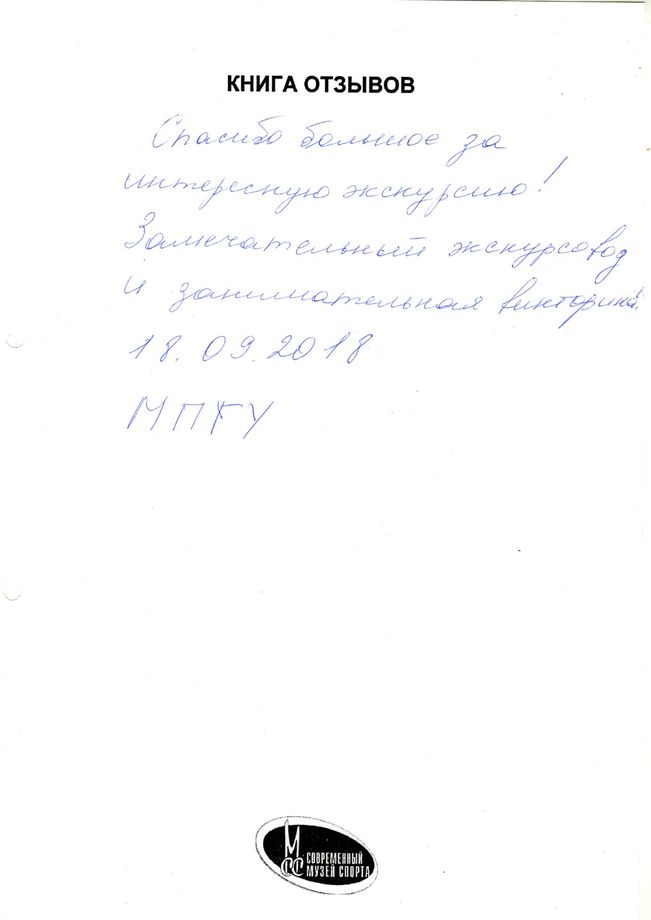 КНИГА ОТЗЫВОВ
Спасибо большое за
интересную экскурсию!
Замечательный экскурсовод
и занимательная викторина!
18.09.2018
МПГУ
МСС СОВРЕМЕННЫЙ
МУЗЕЙ СПОРТА